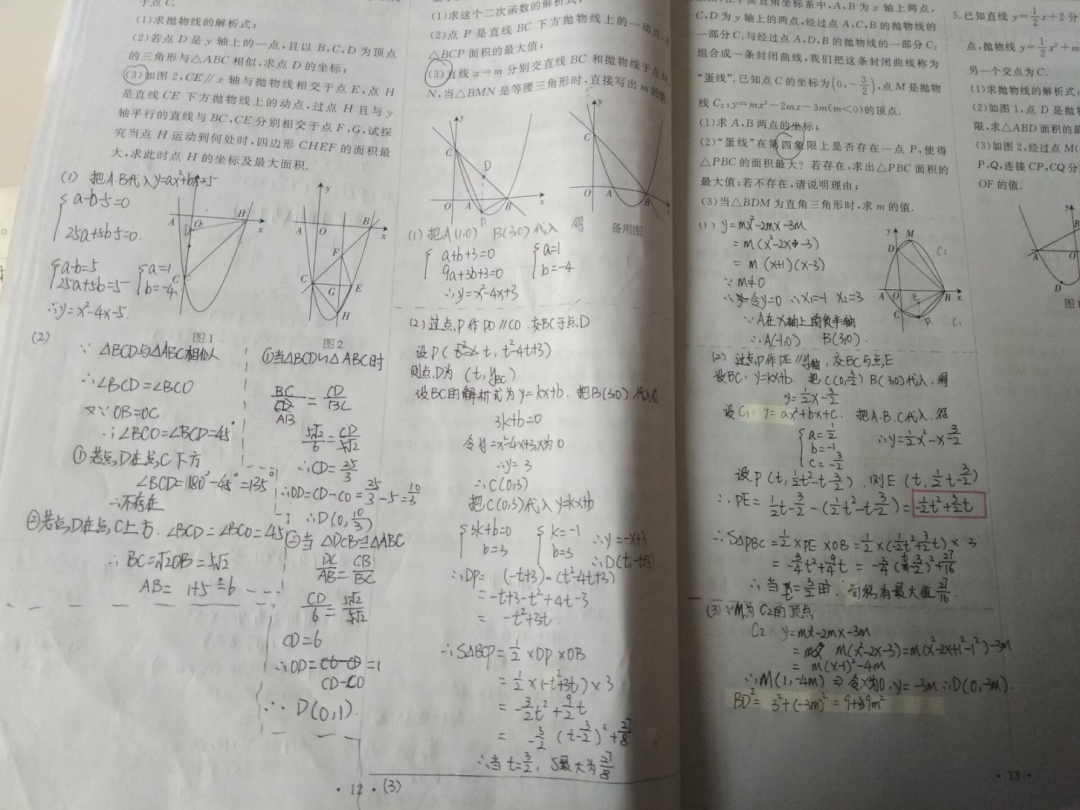 于点C.
(1)求抛物线的解析式;
(2)若点D是y轴上的一点,且以B,C,D为顶点
的三角形与△ABC相似,求点D的坐标;
(3)如图2,CE∥x轴与抛物线相交于点E,点H
是直线CE下方抛物线上的动点,过点H且与y
轴平行的直线与BC,CE分别相交于点F,G,试探
究当点H运动到何处时,四边形CHEF的面积最
大,求此时点H的坐标及最大面积.
(1) 把A.B代入y=ax²+bx+5
a-b-5=0
25a+5b-5=0
a-b=5
25a+5b=5
a=1
b=-4
∴y=x²-4x-5
图1
图2
(2)
∵△BCD与△ABC相似
∴∠BCD=∠BCO
又∵OB=OC
∴∠BCO=∠BCD=45°
①若点D在点C下方
∠BCD=180°-45°=135°
∴不存在
②若点D在点C上方.∠BCD=∠BCO=45°
∴BC=√2OB=5√2
AB=1+5=6
①当△BCD∽△ABC时
BC/AB=CD/BC
5√2/6=CD/5√2
∴CD=25/3
∴OD=CD-CO=25/3-5=10/3
∴D(0,10/3)
②当△DCB∽△ABC
DC/AB=CB/BC
CD/6=5√2/5√2
CD=6
∴OD=CD-CO=1
∴D(0,1)
·12·
(1)求这个二次函数的解析式;
(2)点P是直线BC下方抛物线上的一动点,求
△BCP面积的最大值;
(3)直线x=m分别交直线BC和抛物线于点M,
N,当△BMN是等腰三角形时,直接写出m的值.
备用图
(1)把A(1,0) B(3,0)代入 得
a+b+3=0
9a+3b+3=0
a=1
b=-4
∴y=x²-4x+3
(2)过点P作PD∥CO.交BC于点D
设P(t,t²-4t+3)
则点D为(t,yBC)
设BC的解析式为y=kx+b.把B(3,0)代入得
3k+b=0
令y=x²-4x+3x为0
∴y=3
∴C(0,3)
把C(0,3)代入y=kx+b
3k+b=0
b=3
k=-1
b=3
∴y=-x+3
∴D(t,-t+3)
∴DP=(-t+3)-(t²-4t+3)
=-t+3-t²+4t-3
=-t²+3t.
∴S△BCP=1/2×DP×OB
=1/2×(-t²+3t)×3
=-3/2t²+9/2t
=-3/2(t-3/2)²+27/8
∴当t=3/2,S最大为27/8
(3)
平面直角坐标系中,A,B为x轴上两点,
C,D为y轴上的两点,经过点A,C,B的抛物线的
一部分C₁与经过点A,D,B的抛物线的一部分C₂
组合成一条封闭曲线,我们把这条封闭曲线称为
“蛋线”.已知点C的坐标为(0,-3/2),点M是抛物
线C₂:y=mx²-2mx-3m(m<0)的顶点.
(1)求A,B两点的坐标;
(2)“蛋线”在第四象限上是否存在一点P,使得
△PBC的面积最大?若存在,求出△PBC面积的
最大值;若不存在,请说明理由;
(3)当△BDM为直角三角形时,求m的值.
(1)y=mx²-2mx-3m
=m(x²-2x-3)
=m(x+1)(x-3)
∵m≠0
∴令y=0 ∴x₁=-1 x₂=3
∵A在x轴上的负半轴
∴A(-1,0) B(3,0).
(2)过点P作PE∥y轴,交BC与点E
设BC:y=kx+b.把C(0,-3/2)B(3,0)代入.得
y=1/2x-3/2
设C₁:y=ax²+bx+c.把A.B.C代入.得
a=1/2
b=-1
c=-3/2
∴y=1/2x²-x-3/2
设P(t,1/2t²-t-3/2).则E(t,1/2t-3/2)
∴PE=1/2t-3/2-(1/2t²-t-3/2)=-1/2t²+3/2t
∴S△PBC=1/2×PE×OB=1/2×(-1/2t²+3/2t)×3
=-3/4t²+9/4t=-3/4(t-3/2)²+27/16
∴当t=3/2时,面积有最大值27/16.
(3)∵M为C₂的顶点
C₂ y=mx²-2mx-3m
=m(x²-2x-3)=m(x²-2x+1²-1²)-3m
=m(x-1)²-4m
∴M(1,-4m)⇒令x为0,y=-3m∴D(0,-3m)
BD²=3²+(-3m)²=9+9m²
·13·
5.已知直线y=1/2x+2分
点,抛物线y=-1/2x²+m
另一个交点为C.
(1)求抛物线的解析式
(2)如图1,点D是抛物
限,求△ABD面积的最
(3)如图2,经过点M(
P,Q,连接CP,CQ分
OF的值.